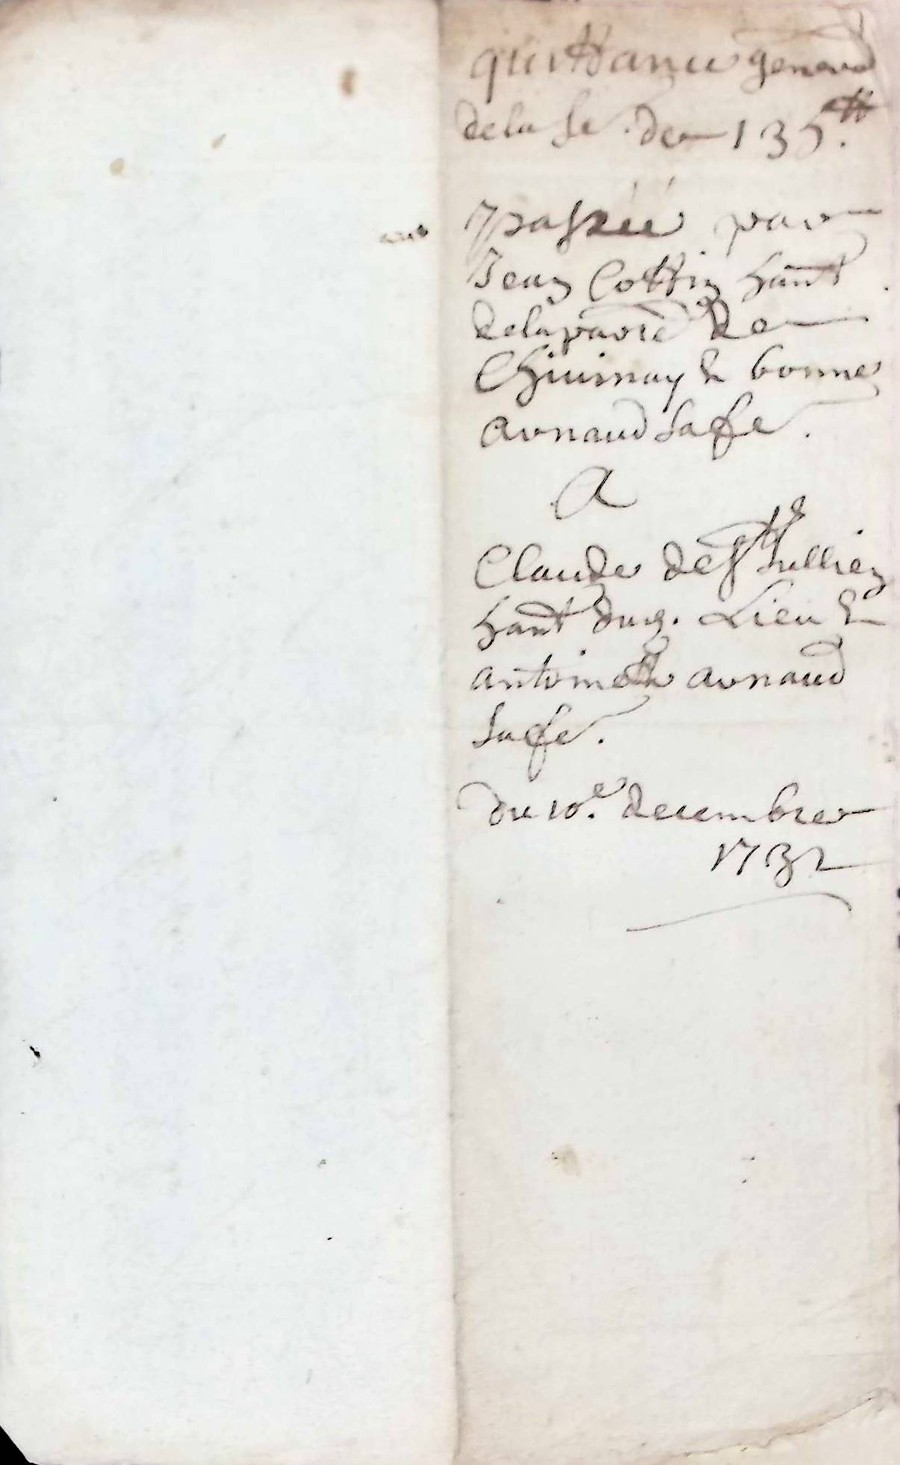 quittance general
de la so. de 135 tt.
passéé par
Jean Cottin hant
de la parre de
Chivinay & bonne
arnaud sa fe.
A
Claude de St Jullien
hant dud. Lieu &
antoinette arnaud
sa fe.
du 10e. decembre
1732